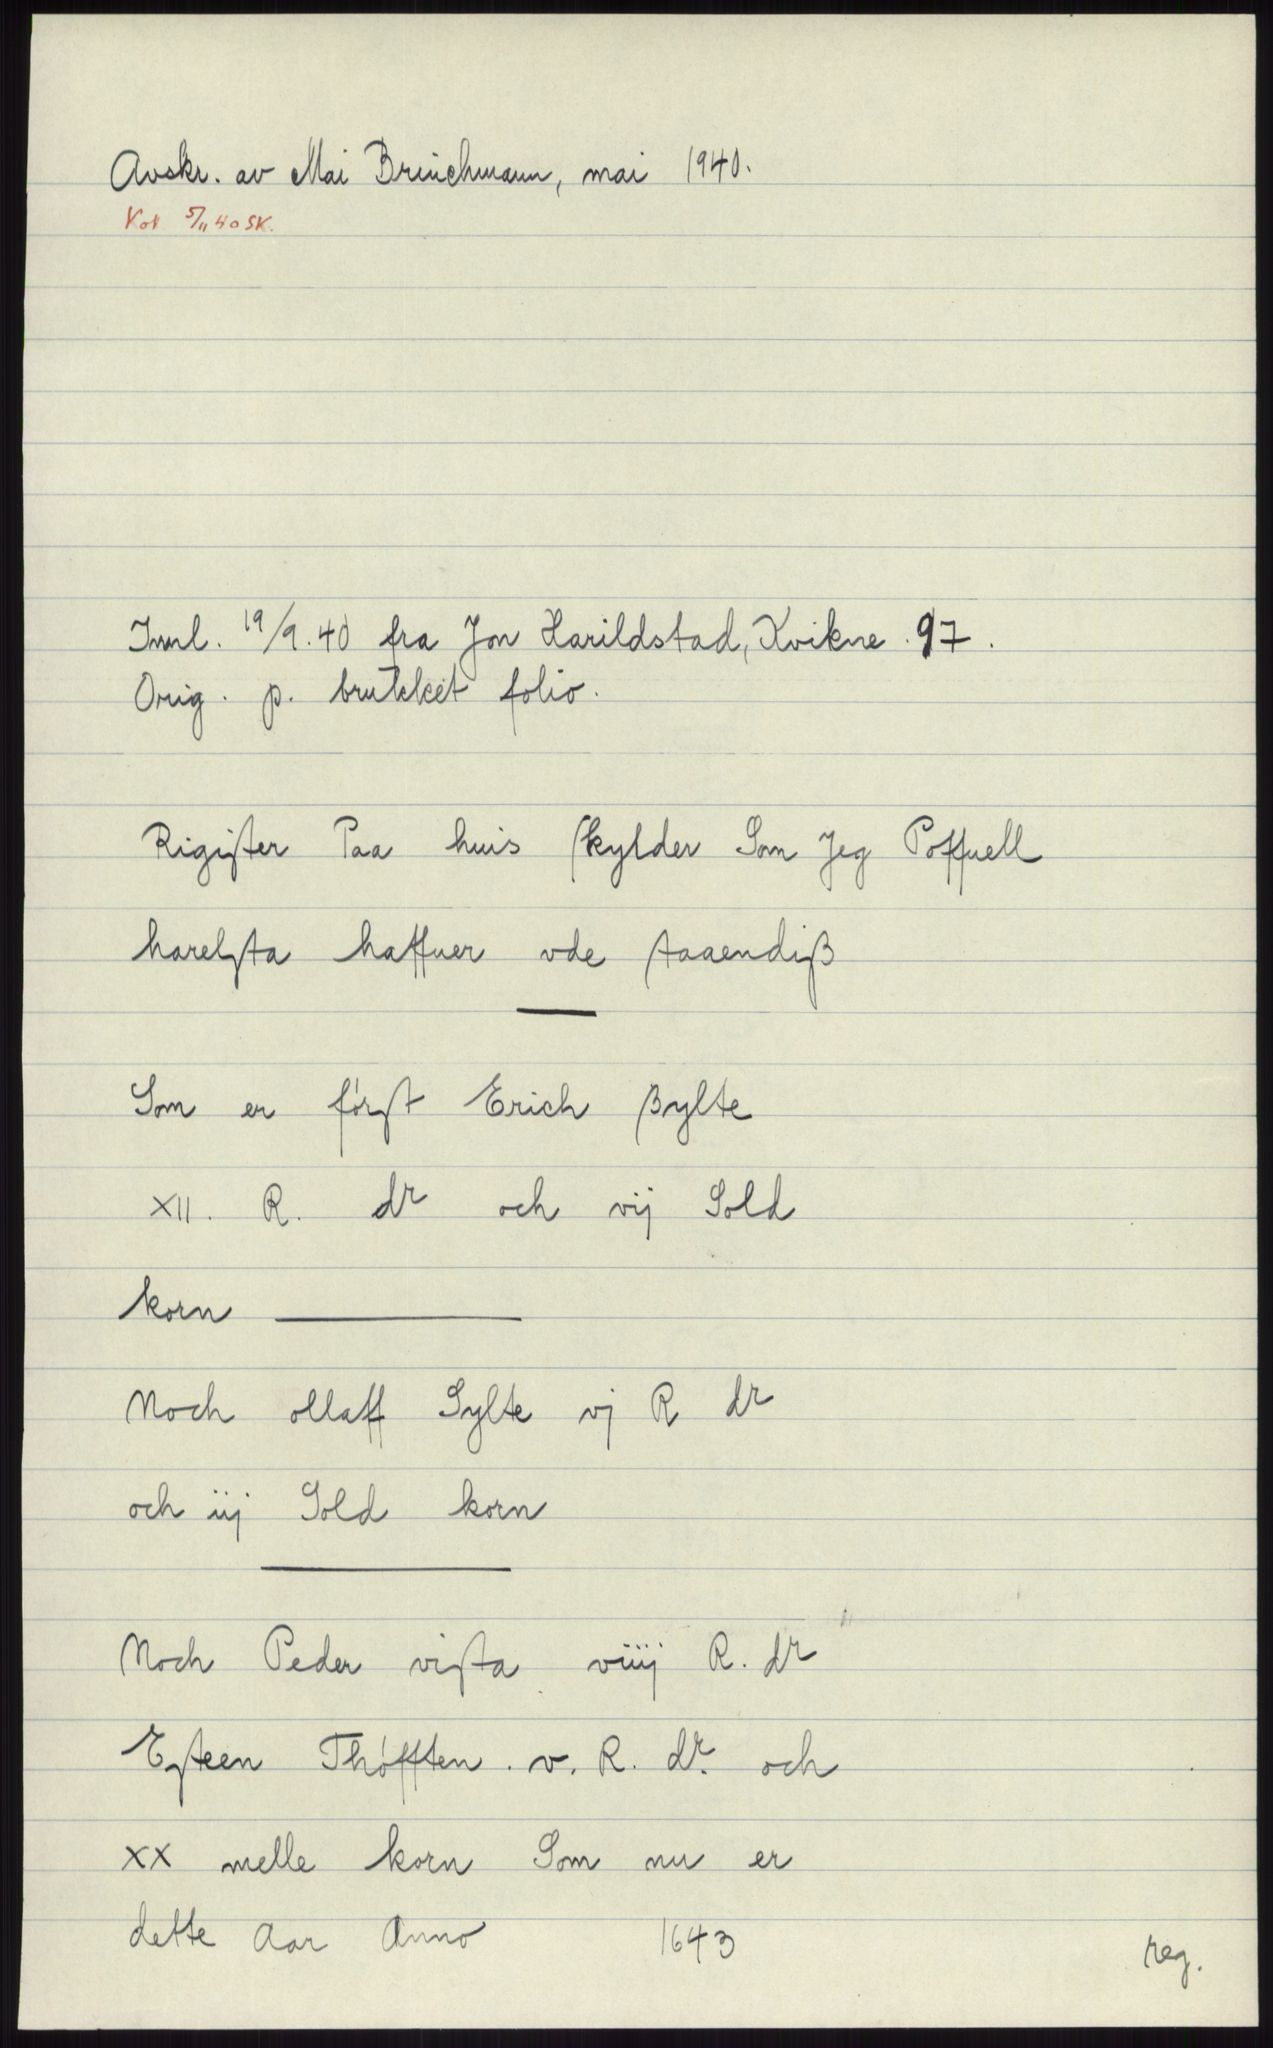 Avskr. av Mai Brinchmann, mai 1940.
Kol 5/11 40 SK.
Innl. 19/9.40 fra Jon Harildstad, Kvikne. 97.
Orig. p. brukket folio.
Rigister Paa huis skylder Som Jeg Poffuell
harelsta haffuer vde staaendiß
Som er først Erich ßylte
XII. R. dr och vij Sold
korn
Noch ollaff Sylte vj R dr
och iij Sold korn
Noch Peder vista viiij R. dr
Esteen Thøfften. v. R. dr. och
XX melle korn Som nu er
dette Aar Anno 1643
reg.